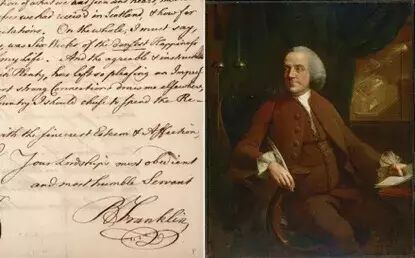 of what we had seen and heard,
esses we had receiv'd in Scotland, & how far
ctations. On the whole, I must say,
was Six Weeks of the densest Happiness
my Life. And the agreable & instruct
in Plenty, has left so pleasing an Impre
t strong Connections draw me elsewhere,
untry I should chuse to spend the Re-
with the sincerest Esteem & Affection,
Your Lordship's most obedient
and most humble Servant
B Franklin